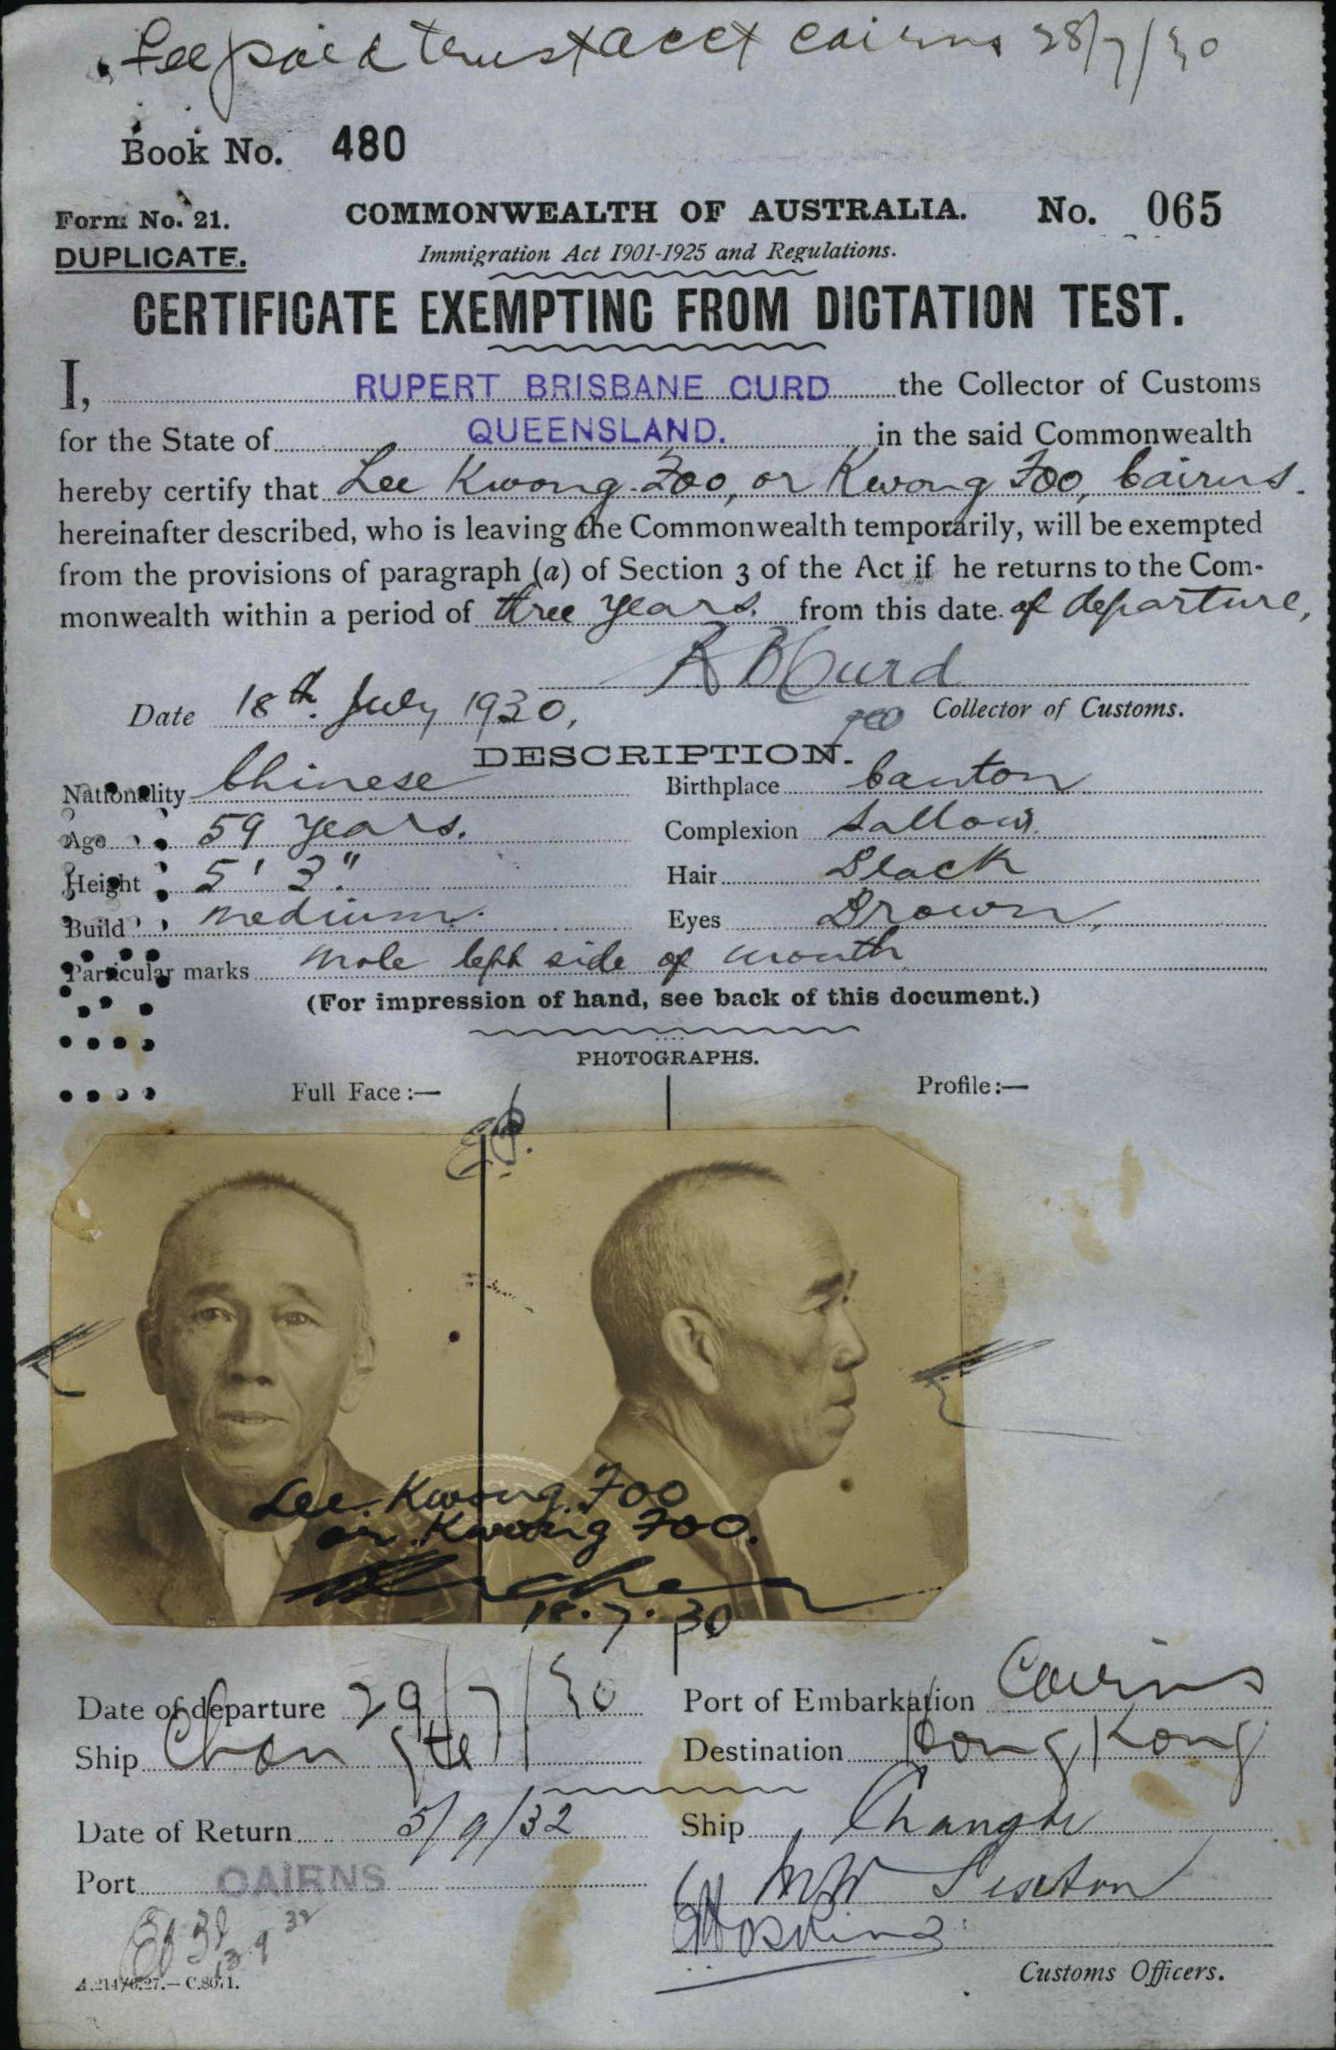 Fee paid trust acct Cairns 28/7/30
Book No. 480
Form No. 21. COMMONWEALTH OF AUSTRALIA. No. 065
DUPLICATE. Immigration Act 1901-1925 and Regulations.
CERTIFICATE EXEMPTING FROM DICTATION TEST.
I, RUPERT BRISBANE CURD the Collector of Customs
for the State of QUEENSLAND. in the said Commonwealth
hereby certify that Lee Kwong Foo, or Kwong Foo, Cairns.
hereinafter described, who is leaving the Commonwealth temporarily, will be exempted
from the provisions of paragraph (a) of Section 3 of the Act if he returns to the Com-
monwealth within a period of three years. from this date of departure,
R B Curd
Date 18th July 1930, Collector of Customs.
DESCRIPTION.
Nationality Chinese Birthplace Canton
Age 59 years. Complexion Sallow.
Height 5' 3". Hair Black
Build medium. Eyes Brown,
Particular marks Mole left side of mouth
(For impression of hand, see back of this document.)
PHOTOGRAPHS.
Full Face:— Profile:—
Lee Kwong Foo
or Kwong Foo.
18.7.30
Date of departure 29/7/30 Port of Embarkation Cairns
Ship Changte Destination Hong Kong
Date of Return 5/9/32 Ship Changte
Port CAIRNS
Customs Officers.
A.2147/6.27.—C.8071.